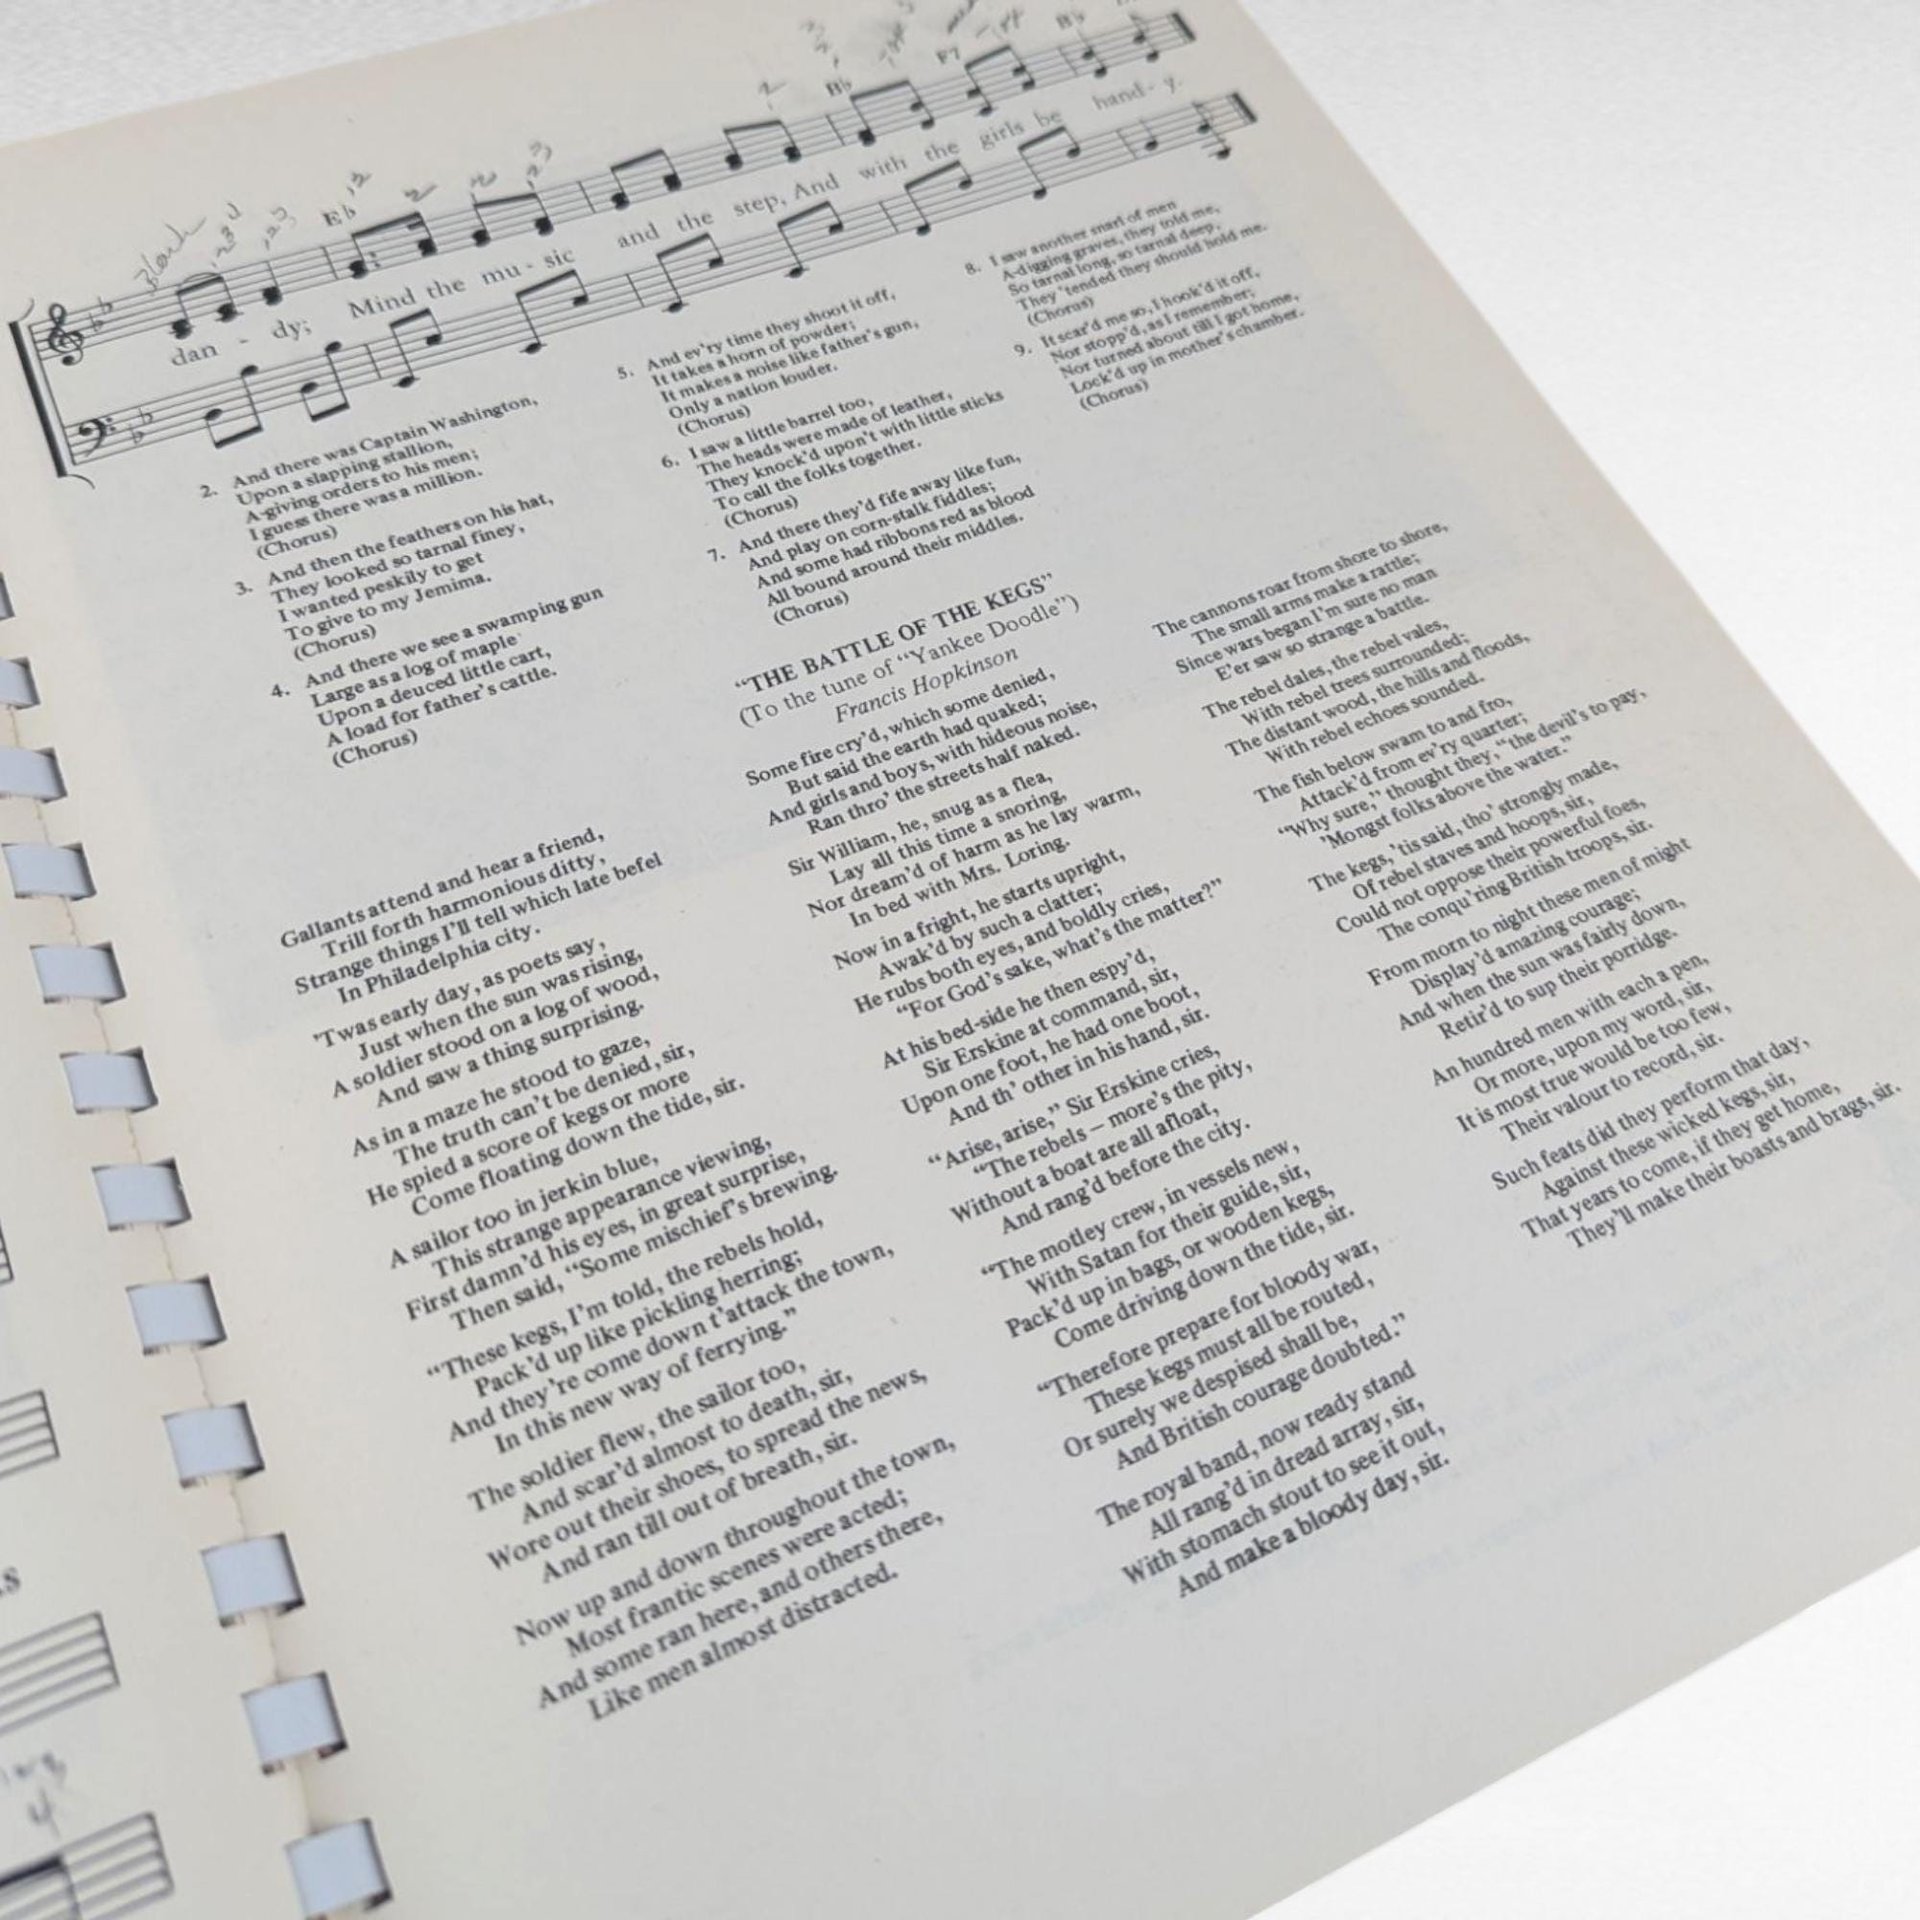 Blank
E♭
B♭
F7
B♭
dan - dy; Mind the mu - sic and the step, And with the girls be hand - y.
2. And there was Captain Washington,
Upon a slapping stallion,
A-giving orders to his men;
I guess there was a million.
(Chorus)
3. And then the feathers on his hat,
They looked so tarnal finey,
I wanted peskily to get
To give to my Jemima.
(Chorus)
4. And there we see a swamping gun
Large as a log of maple
Upon a deuced little cart,
A load for father's cattle.
(Chorus)
5. And ev'ry time they shoot it off,
It takes a horn of powder;
It makes a noise like father's gun,
Only a nation louder.
(Chorus)
6. I saw a little barrel too,
The heads were made of leather,
They knock'd upon't with little sticks
To call the folks together.
(Chorus)
7. And there they'd fife away like fun,
And play on corn-stalk fiddles;
And some had ribbons red as blood
All bound around their middles.
(Chorus)
8. I saw another snarl of men
A-digging graves, they told me,
So tarnal long, so tarnal deep,
They 'tended they should hold me.
(Chorus)
9. It scar'd me so, I hook'd it off,
Nor stopp'd, as I remember;
Nor turned about till I got home,
Lock'd up in mother's chamber.
(Chorus)
"THE BATTLE OF THE KEGS"
(To the tune of "Yankee Doodle")
Francis Hopkinson
Gallants attend and hear a friend,
Trill forth harmonious ditty,
Strange things I'll tell which late befel
In Philadelphia city.
'Twas early day, as poets say,
Just when the sun was rising,
A soldier stood on a log of wood,
And saw a thing surprising.
As in a maze he stood to gaze,
The truth can't be denied, sir,
He spied a score of kegs or more
Come floating down the tide, sir.
A sailor too in jerkin blue,
This strange appearance viewing,
First damn'd his eyes, in great surprise,
Then said, "Some mischief's brewing.
"These kegs, I'm told, the rebels hold,
Pack'd up like pickling herring;
And they're come down t'attack the town,
In this new way of ferrying."
The soldier flew, the sailor too,
And scar'd almost to death, sir,
Wore out their shoes, to spread the news,
And ran till out of breath, sir.
Now up and down throughout the town,
Most frantic scenes were acted;
And some ran here, and others there,
Like men almost distracted.
Some fire cry'd, which some denied,
But said the earth had quaked;
And girls and boys, with hideous noise,
Ran thro' the streets half naked.
Sir William, he, snug as a flea,
Lay all this time a snoring,
Nor dream'd of harm as he lay warm,
In bed with Mrs. Loring.
Now in a fright, he starts upright,
Awak'd by such a clatter;
He rubs both eyes, and boldly cries,
"For God's sake, what's the matter?"
At his bed-side he then espy'd,
Sir Erskine at command, sir,
Upon one foot, he had one boot,
And th' other in his hand, sir.
"Arise, arise," Sir Erskine cries,
"The rebels — more's the pity,
Without a boat are all afloat,
And rang'd before the city.
"The motley crew, in vessels new,
With Satan for their guide, sir,
Pack'd up in bags, or wooden kegs,
Come driving down the tide, sir.
"Therefore prepare for bloody war,
These kegs must all be routed,
Or surely we despised shall be,
And British courage doubted."
The royal band, now ready stand
All rang'd in dread array, sir,
With stomach stout to see it out,
And make a bloody day, sir.
The cannons roar from shore to shore,
The small arms make a rattle;
Since wars began I'm sure no man
E'er saw so strange a battle.
The rebel dales, the rebel vales,
With rebel trees surrounded;
The distant wood, the hills and floods,
With rebel echoes sounded.
The fish below swam to and fro,
Attack'd from ev'ry quarter;
"Why sure," thought they, "the devil's to pay,
'Mongst folks above the water."
The kegs, 'tis said, tho' strongly made,
Of rebel staves and hoops, sir,
Could not oppose their powerful foes,
The conqu'ring British troops, sir.
From morn to night these men of might
Display'd amazing courage;
And when the sun was fairly down,
Retir'd to sup their porridge.
An hundred men with each a pen,
Or more, upon my word, sir,
It is most true would be too few,
Their valour to record, sir.
Such feats did they perform that day,
Against these wicked kegs, sir,
That years to come, if they get home,
They'll make their boasts and brags, sir.